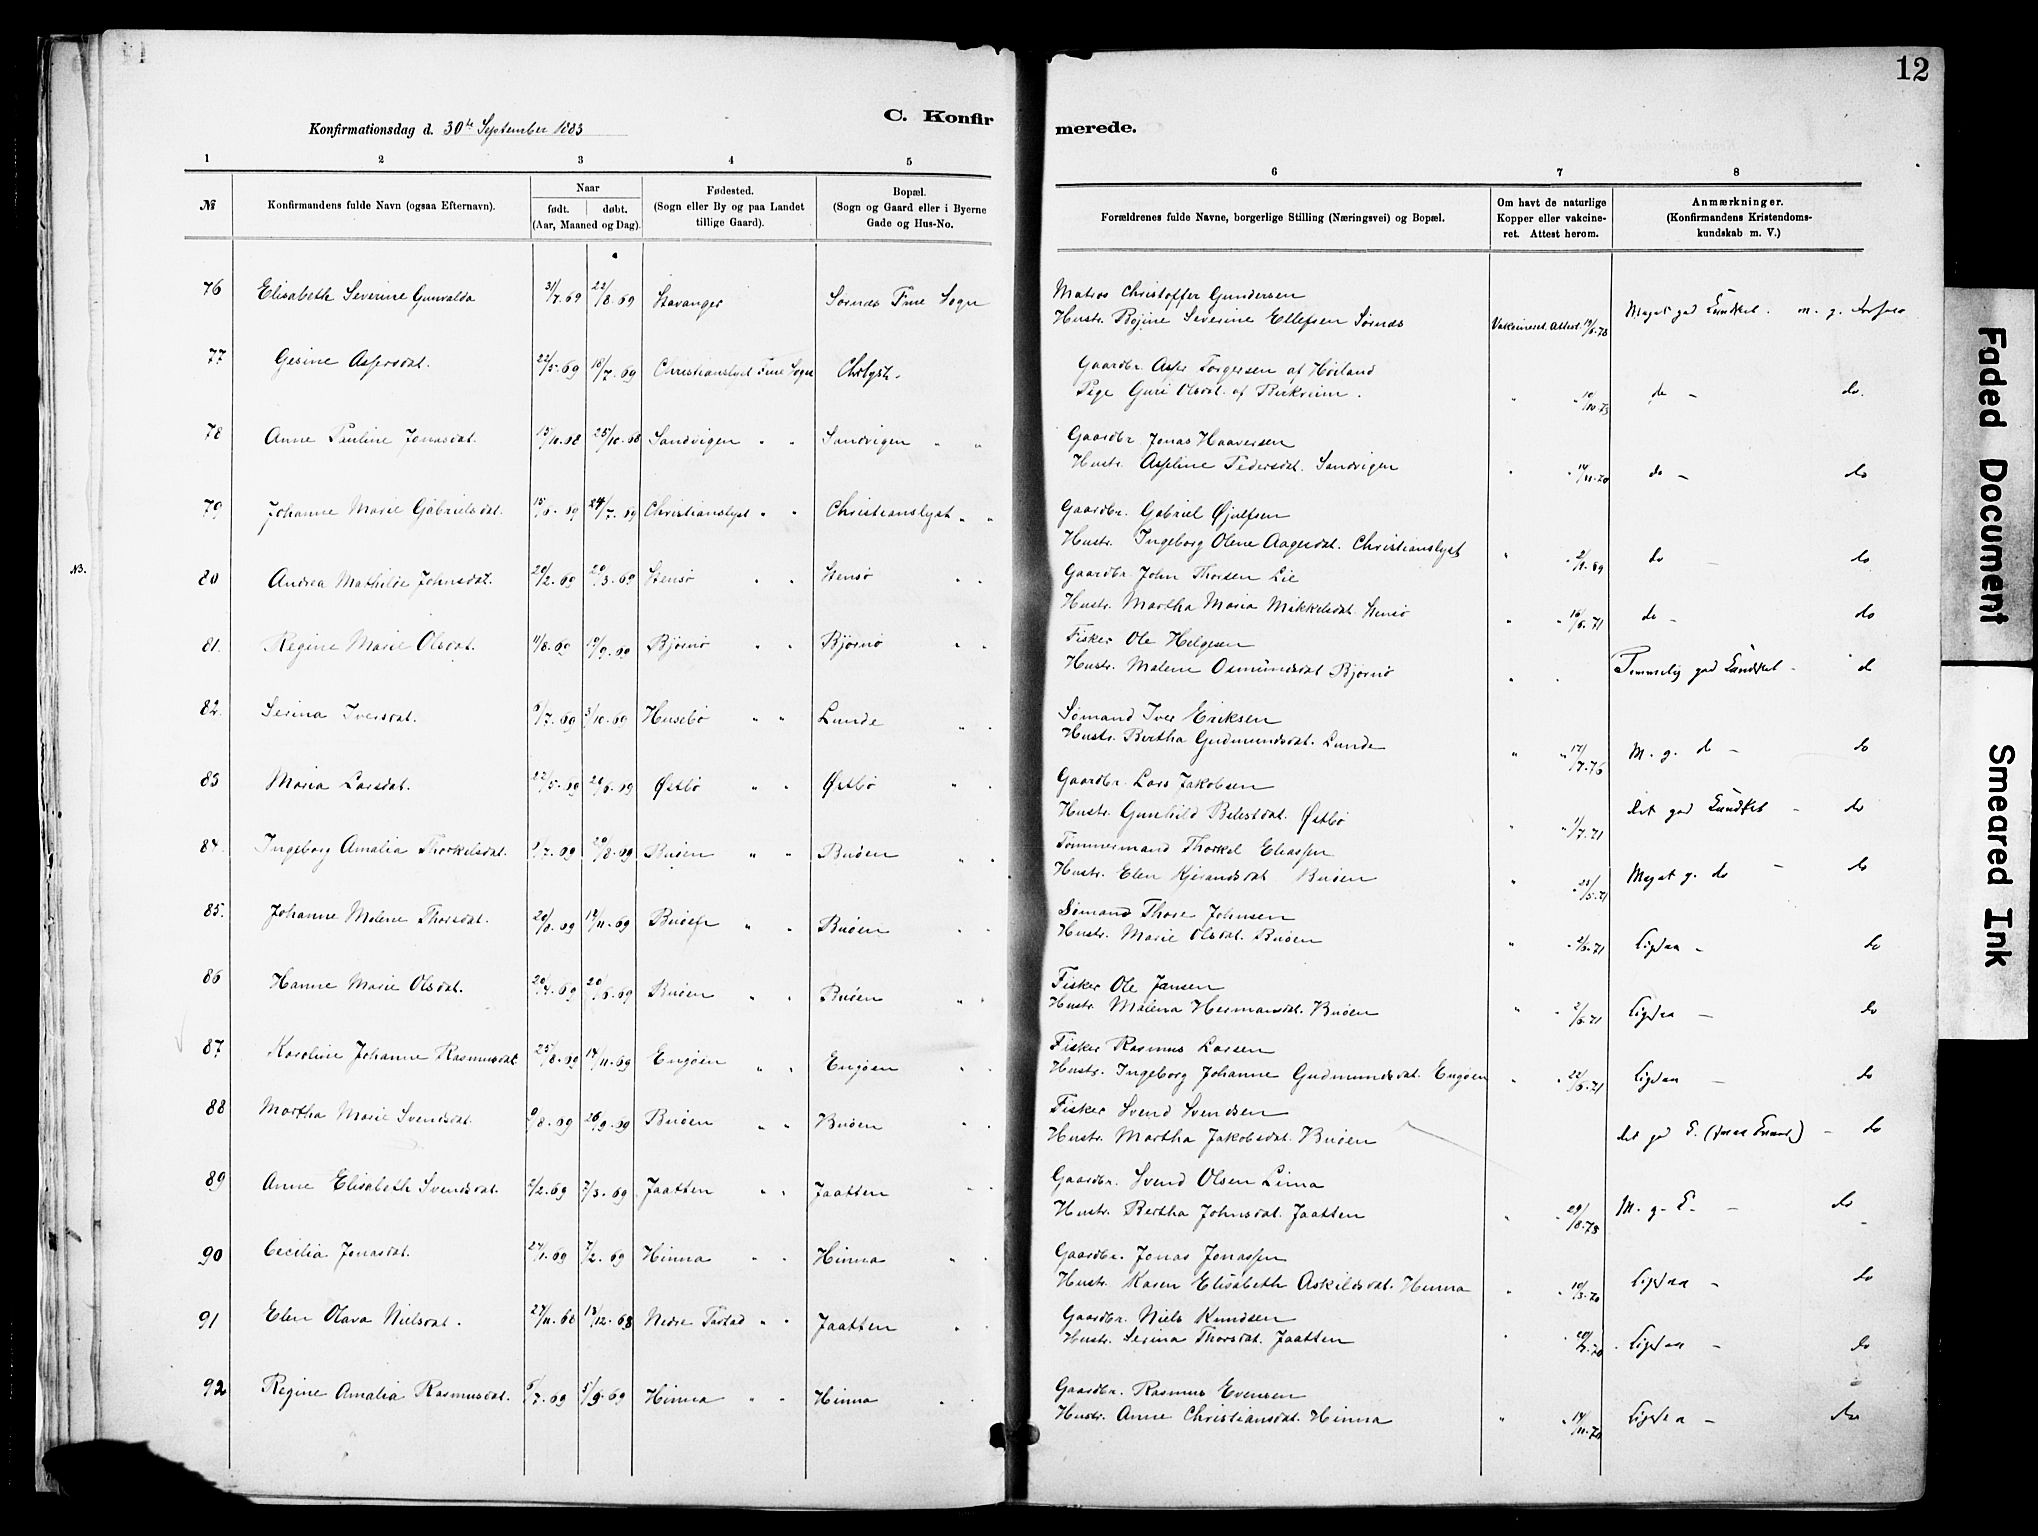 12
C. Konfirmerede.
Konfirmationsdag d. 30te September 1883
1 2 3 4 5 6 7 8
№
Konfirmandens fulde Navn (ogsaa Efternavn).
Naar
født. døbt.
(Aar, Maaned og Dag).
Fødested.
(Sogn eller By og paa Landet
tillige Gaard).
Bopæl.
(Sogn og Gaard eller i Byerne
Gade og Hus-No.
Forældrenes fulde Navne, borgerlige Stilling (Næringsvei) og Bopæl.
Om havt de naturlige
Kopper eller vakcine-
ret. Attest herom.
Anmærkninger.
(Konfirmandens Kristendoms-
kundskab m. V.)
76 Elisabeth Severine Gunvalda 31/7.69 22/8.69 Stavanger Sørnes Frue Sogn
Matros Christoffer Gundersen
Hustr. Rejine Severine Ellefsen Sørnæs Vakcineret. Attest. Meget god Kundskab. m. g.
77 Gesine Asfersdat. 22/5.69 18/7.69 Christianslyst Frue Sogn Chrlyst.
Gaardbr. Asfer Torgersen af Høiland
Pige Guri Olsdat. af Birkreim. " 10/10.73 do - do.
78 Anne Pauline Jonasdat. 25/10.68 Sandvigen " " Sandvigen " "
Gaardbr. Jonas Haaversen
Hustr. Aspeline Pedersdat. Sandvigen " " 14/11.70 do - do
79 Johanne Marie Gabrielsdat. 24/7.69 Christianslyst " " Christianslyst " "
Gaardbr. Gabriel Øjulfsen
Hustr. Ingeborg Olene Aagesdat. Christianslyst " do - do
NB. 80 Andrea Mathilde Johnsdat. 20/2.69 29/3.69 Stensø " " Stensø " "
Gaardbr. John Thorsen Lie
Hustr. Martha Maria Mikkelsdat. Stensø " " 16/6.71 do - do
81. Regine Marie Olsdat. 11/8.69 19/9.69 Bjørnø " " Bjørnø " "
Fisker Ole Helgesen
Hustr. Malene Osmundsdat Bjørnø " " Temmelig god Kundskab - do
82. Serina Iversdat. 3/10.69 Husebø " " Lunde " "
Sømand Iver Eriksen
Hustr. Bertha Gudmundsdat. Lunde " " 17/7.76 M. g. do - do
83 Maria Larsdat. 22/5.69 20/6.69 Østbø " " Østbø " "
Gaardbr. Lars Jakobsen
Hustr. Gunhild Belestdat. Østbø " " 1/7.71 det god Kundskab - do
84. Ingeborg Amalia Thorkelsdat. Buøen " " Buøen " "
Tømmermand Thorkel Eliassen
Hustr. Elen Kjerandsdat Buøen " Meget g. do - do
85. Johanne Malene Thorsdat. 14/11.69 Buøen " " Buøen " "
Sømand Thore Johnsen
Hustr. Marie Olsdat. Buøen " Ligesaa - do
86 Hanne Marie Olsdat. 20/4.69 20/6.69 Buøen " " Buøen " "
Fisker Ole Jansen
Hustr. Malena Hermansdat. Buøen " " 2/6.71 Ligesaa - do
87. Karoline Johanne Rasmusdat 25/8.69 14/11.69 Engøen " " Engøen " "
Fisker Rasmus Larsen
Hustr. Ingeborg Johanne Gudmundsdat. Engøen " " 22/6.71 Ligesaa - do
88 Martha Marie Svendsdat. 26/9.69 Buøen " " Buøen " "
Fisker Svend Svendsen
Hustr. Martha Jakobsdat. Buøen det god K. - do
89 Anne Elisabeth Svendsdat. 7/3.69 Jaatten " " Jaatten " "
Gaardbr. Svend Olsen Lima
Hustr. Bertha Johnsdat. Jaatten " " 29/8.73 M. g. K. - do
90 Cecilia Jonasdat. 27/1.69 7/2.69 Hinna " " Hinna " "
Gaardbr. Jonas Jonassen
Hustr. Karen Elisabeth Askildsdat. Hinna " Ligesaa - do
91 Elen Olava Nielsdat. 27/11.68 13/12.68 Nedre Tastad " " Jaatten " "
Gaardbr. Niels Knudsen
Hustr. Serina Thorsdat. Jaatten " Ligesaa - do
92 Regine Amalia Rasmusdat. 5/9.69 Hinna " " Hinna " "
Gaardbr. Rasmus Evensen
Hustr. Anne Christiansdat. Hinna " " 14/11.70 Ligesaa - do
Faded Document
Smeared Ink